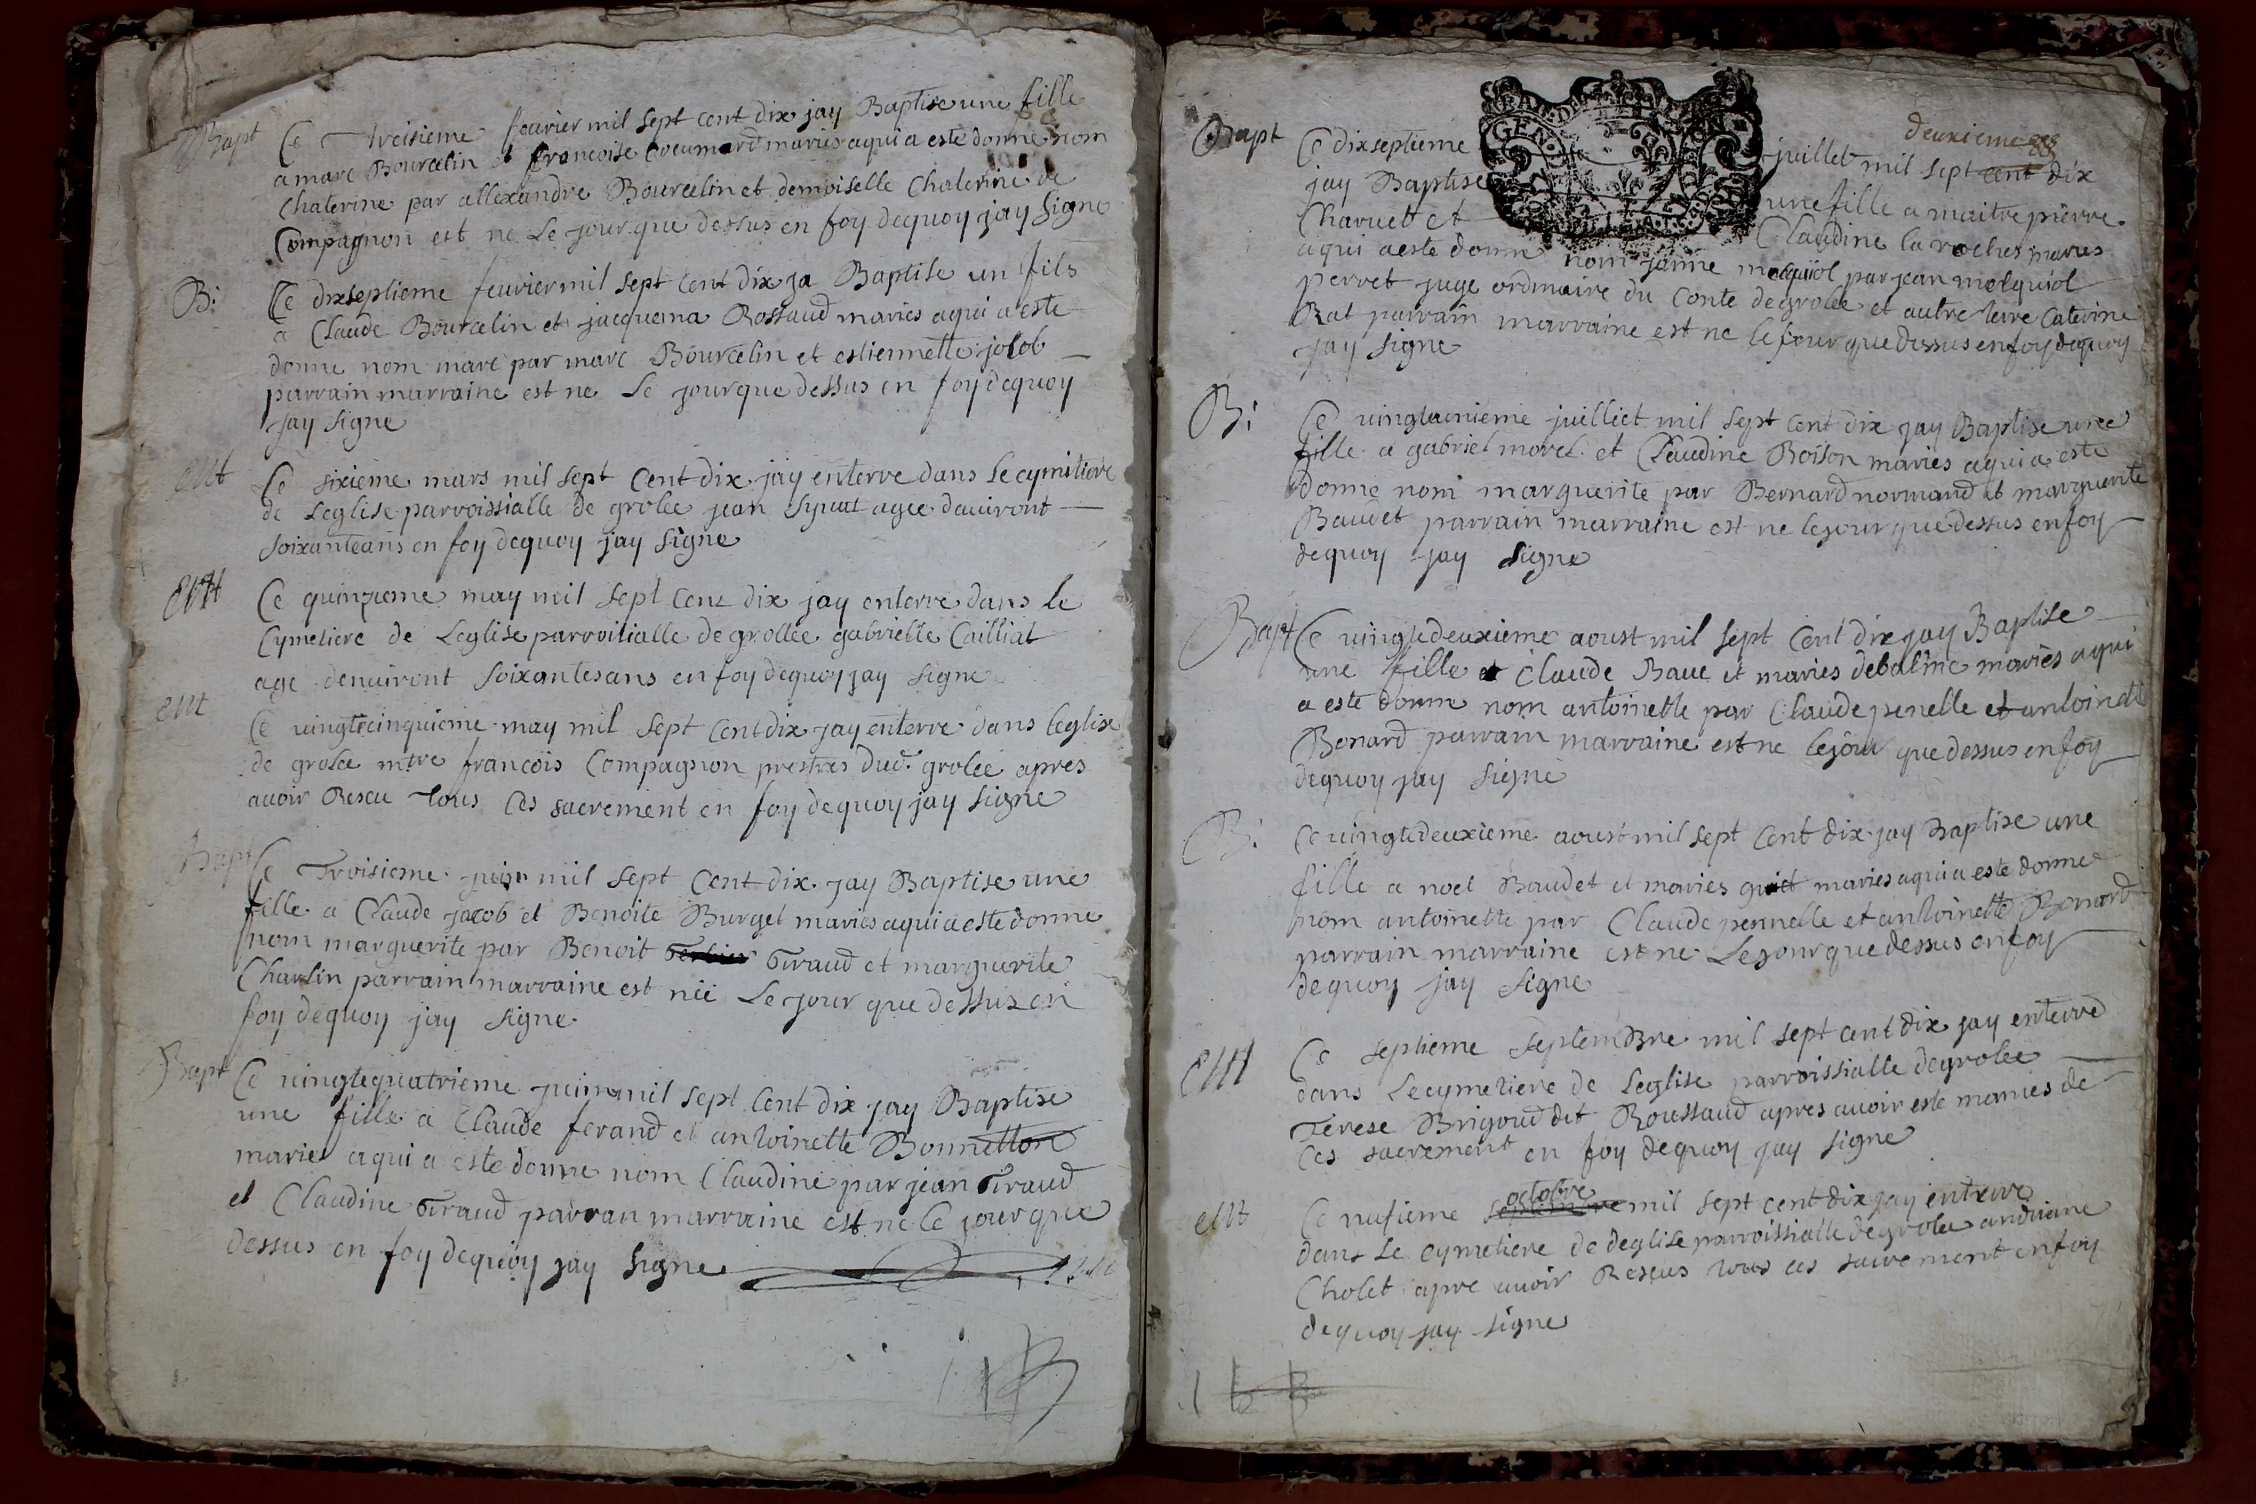 Bapt
Ce treisieme feurier mil sept cent dix jay Baptise une fille
a marc Bourcelin et francoise Cocumard maries aqui a este donne nom
Chaterine par allexandre Bourcelin et demoiselle Chaterine de
Compagnon est ne Le jour que dessus en foy dequoy jay Signe
B:
Ce dixseptieme feurier mil sept cent dix ja Baptise un fils
a Claude Bourcelin et jacquema Rossaud maries aqui a este
donne nom marc par marc Bourcelin et estiennette jocob
parrain marraine est ne Le jour que dessus en foy dequoy
jay Signe
ent
Ce sixieme mars mil sept Cent dix jay enterre dans Le cymitiere
de Leglise parroissialle de grolee jean agee dauiront
soixante ans en foy dequoy jay Signe
ent
Ce quinzieme may mil sept Cent dix jay enterre dans le
Cymetiere de Leglise parroisialle de grollee gabrielle Cailliat
age denuiront soixantes ans en foy dequoy jay Signe
ent
Ce uingtecinquieme may mil sept Cent dix jay enterre dans leglise
de grolee mtre francois Compagnon prestres dud. grolee apres
auoir Rescu tous Ces sacrement en foy dequoy jay Signe
Bapt
Ce Troisieme juin mil sept Cent dix jay Baptise une
fille a Claude jacob et Benoite Burget maries aqui a este donne
nom marguerite par Benoit Tiraud et marguerite
Charlin parrain marraine est nee Le jour que dessus en
foy dequoy jay Signe
Bapt
Ce uingtequatrieme juin mil sept Cent dix jay Baptise
une fille a Claude ferand et antoinette Bonnetton
maries aqui a este donne nom Claudine par jean Tiraud
et Claudine Tiraud parran marraine est ne le jour que
dessus en foy dequoy jay Signe
deuxieme
Bapt
Ce dixseptieme juillet mil sept cent dix
jay Baptise une fille a maitre pierre
Charuet et Claudine la roches maries
aqui a este donne nom janne molquiol par jean molquiol
perret juge ordinaire du Conte de grolee et autre terre Caterine
Rat parrain marraine est ne le jour que dessus en foy dequoy
jay Signe
B:
Ce uingtunieme juilliet mil sept Cent dix jay Baptise une
fille a gabriel morel et Claudine Roison maries aqui a este
donne nom marguerite par Bernard normand et marguerite
Baudet parrain marraine est ne le jour que dessus en foy
dequoy jay Signe
Bapt
Ce uingtedeuxieme aoust mil sept Cent dix jay Baptise
une fille a Claude Baue et maries debalme maries aqui
a este donne nom antoinette par Claude penelle et antoinette
Bonard parrain marraine est ne le jour que dessus en foy
dequoy jay Signe
B:
Ce uingtedeuxieme aoust mil sept Cent dix jay Baptise une
fille a noel Baudet et maries maries aqui a este donne
nom antoinette par Claude pennelle et antoinette Bonard
parrain marraine est ne Le jour que dessus en foy
dequoy jay Signe
ent
Ce septieme septembre mil sept cent dix jay enterre
dans Le cymetiere de Leglise parroissialle de grolee
Terese Brigoud dit Roussaud apres auoir este manies de
Ces sacrement en foy dequoy jay Signe
octobre
ent
Ce nufieme septembre mil sept cent dix jay enterre
dans Le cymetiere de deglise parroissialle de grolee andriane
Cholet apre auoir Rescus tous ces sacrement en foy
dequoy jay Signe